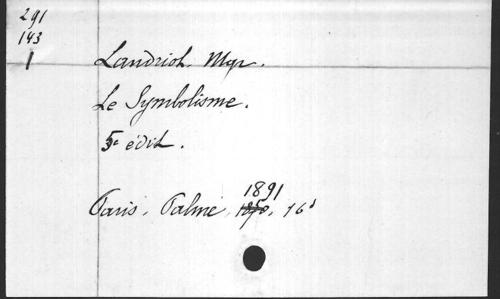 291
143
1
Landriot. Mgr.
Le Symbolisme.
5e édit.
1891
Paris, Palmé, 16°